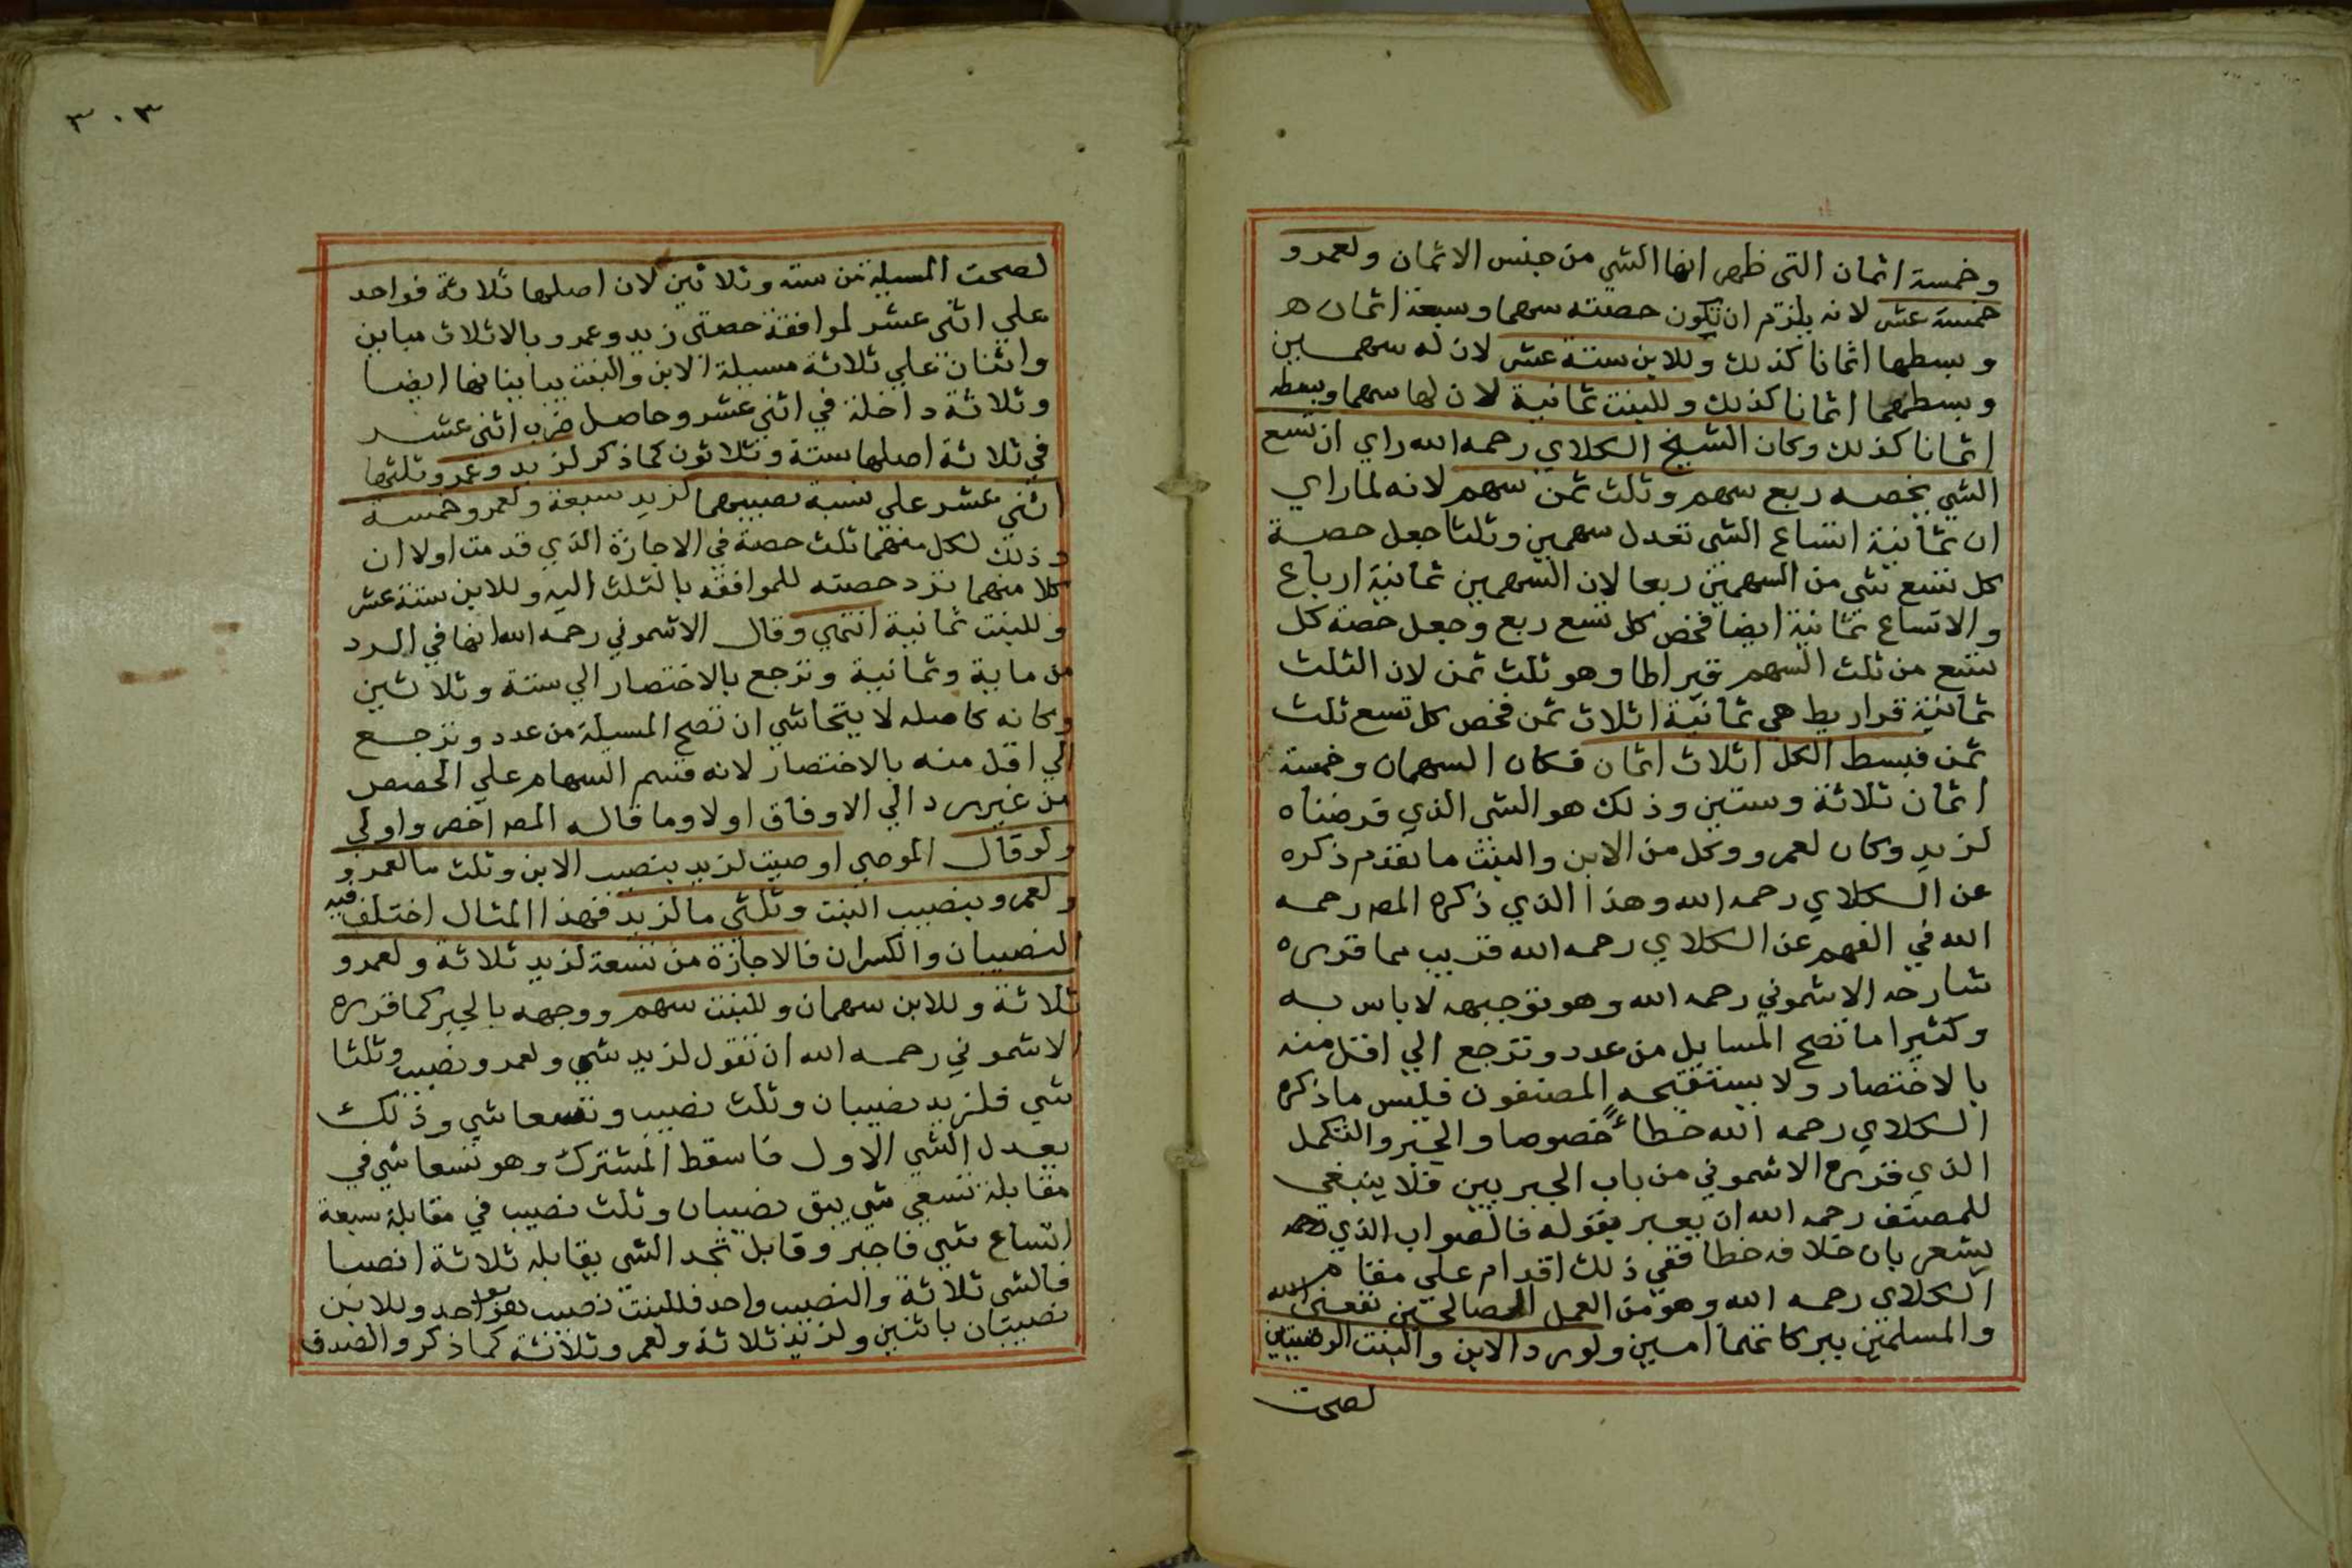 وخمسة اثمان التي ظهر انها الشي من جنس الاثمان ولعمرو
خمسة عشر لانه يلزم ان تكون حصته سهما وسبعة اثمان
وبسطها اثمانا كذلك وللابن ستة عشر لان له سهمين
وبسطهما اثمانا كذلك وللبنت ثمانية لان لها سهما وبسطه
اثمانا كذلك وكان الشيخ الكلاي رحمه الله راي ان تسع
الشي يخصه ربع سهم وثلث ثمن سهم لانه لما راي
ان ثمانية اتساع الشي تعدل سهمين وثلثا جعل حصة
كل تسع شي من السهمين ربعا لان السهمين ثمانية ارباع
والاتساع ثمانية ايضا فخص كل تسع ربع وجعل حصة كل
تسع من ثلث السهم قيراطا وهو ثلث ثمن لان الثلث
ثمانية قراريط هي ثمانية اثلاث ثمن فخص كل تسع ثلث
ثمن فبسط الكل اثلاث اثمان فكان السهمان وخمسة
اثمان ثلاثة وستين وذلك هو الشي الذي فرضناه
لزيد وكان لعمرو ولكل من الابن والبنت ما تقدم ذكره
عن الكلاي رحمه الله وهذا الذي ذكره المص رحمه
الله في الفهم عن الكلاي رحمه الله قريب مما قرره
شارحه الاشموني رحمه الله وهو توجيهه لا باس به
وكثيرا ما تصح المسايل من عدد وترجع الي اقل منه
بالاختصار ولا يستقبحه المصنفون فليس ما ذكره
الكلاي رحمه الله خطأ خصوصا والجبر والتكمل
الذي قرره الاشموني من باب الجبريين فلا ينبغي
للمصنف رحمه الله ان يعبر بقوله فالصواب الذي
يشعر بان خلافه خطا ففي ذلك اقدام علي مقام
الكلاي رحمه الله وهو من العمل الصالحين نفعني الله
والمسلمين ببركاتهما امين ولو رد الابن والبنت الوصيتين
لصحت
٣٠٣
لصحت المسيلة من ستة وثلاثين لان اصلها ثلاثة فواحد
علي اثني عشر لموافقة حصتي زيد وعمرو بالاثلاث مباين
واثنان علي ثلاثة مسيلة الابن والبنت يباينانها ايضا
وثلاثة داخلة في اثني عشر وحاصل ضرب اثني عشر
في ثلاثة اصلها ستة وثلاثون كما ذكر لزيد وعمرو ثلثها
اثني عشر علي نسبة نصيبيهما لزيد سبعة ولعمرو خمسة
وذلك لكل منهما ثلث حصة في الاجازة الذي قدمت اولا ان
كلا منهما ترد حصته للموافقه بالثلث اليه وللابن ستة عشر
وللبنت ثمانية انتهي وقال الاشموني رحمه الله انها في الرد
من ماية وثمانية وترجع بالاختصار الي ستة وثلاثين
وكانه كاصله لا يتحاشي ان تصح المسيلة من عدد وترجع
الي اقل منه بالاختصار لانه قسم السهام علي الحصص
من غير رد الي الاوفاق اولا وما قاله المص اخص واولي
ولو قال الموصي اوصيت لزيد بنصيب الابن وثلث ما لعمرو
ولعمرو بنصيب البنت وثلثي ما لزيد فهذا المثال اختلف فيه
النصيبان والكسران فالاجازة من تسعة لزيد ثلاثة ولعمرو
ثلاثة وللابن سهمان وللبنت سهم ووجهه بالجبر كما قرره
الاشموني رحمه الله ان تقول لزيد شي ولعمرو نصيب وثلثا
شي فلزيد نصيبان وثلث نصيب وتسعا شي وذلك
يعدل الشي الاول فاسقط المشترك وهو تسعا شي في
مقابلة تسعي شي يبق نصيبان وثلث نصيب في مقابلة سبعة
اتساع شي فاجبر وقابل تجد الشي يقابله ثلاثة انصبا
فالشي ثلاثة والنصيب واحد فللبنت نصيب بواحد وللابن
نصيبان باثنين ولزيد ثلاثة ولعمرو ثلاثة كما ذكر والصدق